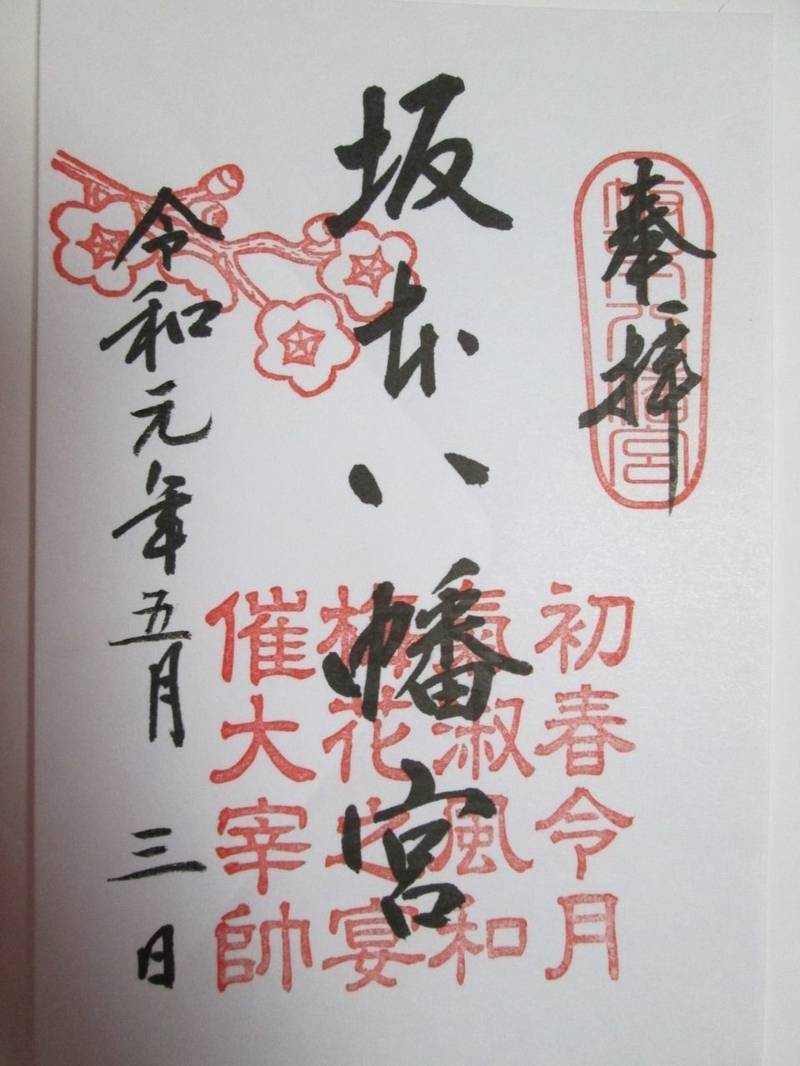 奉拝
坂本八幡宮
坂本八幡宮
初春令月
氣淑風和
梅花之宴
催大宰帥
令和元年五月三日